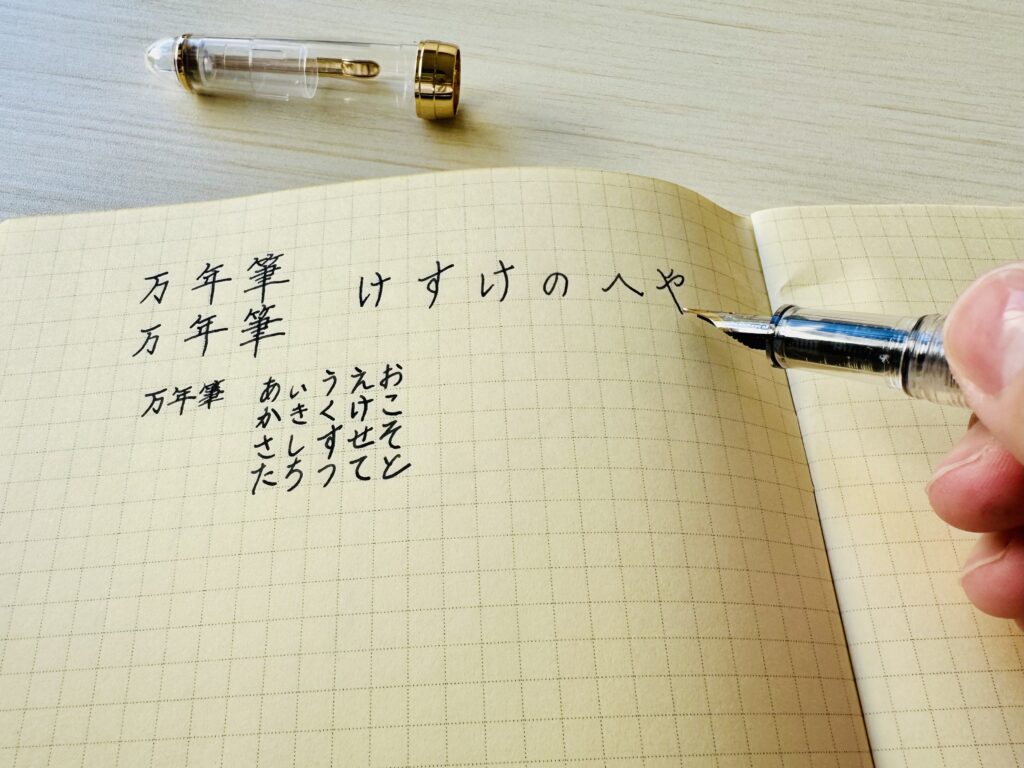 万年筆 けすけのへや
万年筆
万年筆
あいうえお
かきくけこ
さしすせそ
たちつてと